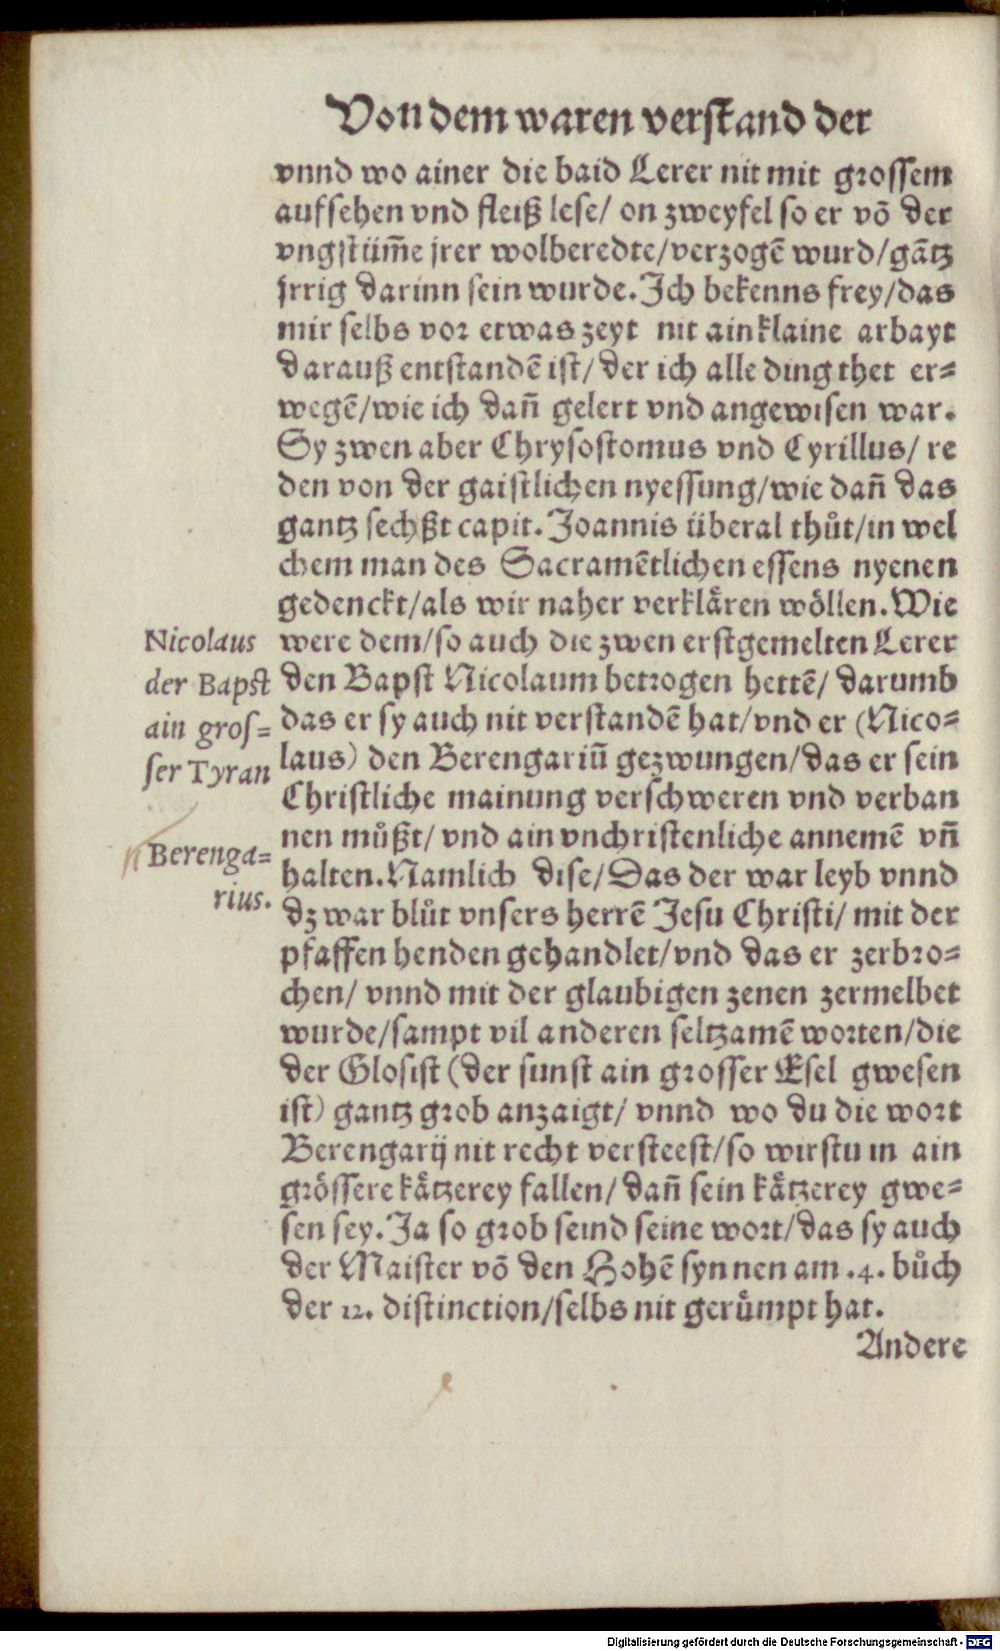 Von dem waren verstand der
vnnd wo ainer die baid Lerer nit mit grossem
aufsehen vnd fleiß lese/ on zweyfel so er võ der
vngstüm̃e jrer wolberedte/verzogẽ wurd/gãtz
jrrig darinn sein wurde. Ich bekenns frey/das
mir selbs vor etwas zeyt nit ain klaine arbayt
darauß entstandẽ ist/ der ich alle ding thet er=
wegẽ/wie ich dañ gelert vnd angewisen war.
Sy zwen aber Chrysostomus vnd Cyrillus/ re
den von der gaistlichen nyessung/wie dañ das
gantz sechßt capit. Joannis überal thůt/in wel
chem man des Sacramẽtlichen essens nyenen
gedenckt/als wir naher verklåren wöllen. Wie
were dem/so auch die zwen erstgemelten Lerer
den Bapst Nicolaum betrogen hettẽ/ darumb
das er sy auch nit verstandẽ hat/vnd er (Nico=
laus) den Berengariũ gezwungen/das er sein
Christliche mainung verschweren vnd verban
nen můßt/ vnd ain vnchristenliche annemẽ vñ
halten. Namlich dise/Das der war leyb vnnd
dz war blůt vnsers herrẽ Jesu Christi/ mit der
pfaffen henden gehandlet/vnd das er zerbro=
chen/ vnnd mit der glaubigen zenen zermelbet
wurde/sampt vil anderen seltzamẽ worten/die
der Glosist (der sunst ain grosser Esel gwesen
ist) gantz grob anzaigt/ vnnd wo du die wort
Berengarij nit recht versteest/so wirstu in ain
grössere kåtzerey fallen/ dañ sein kåtzerey gwe=
sen sey. Ja so grob seind seine wort/das sy auch
der Maister võ den Hohẽ synnen am .4. bůch
der 12. distinction/selbs nit gerůmpt hat.
Andere
Nicolaus
der Bapst
ain gros=
ser Tyran
Berenga=
rius.
Digitalisierung gefördert durch die Deutsche Forschungsgemeinschaft - DFG